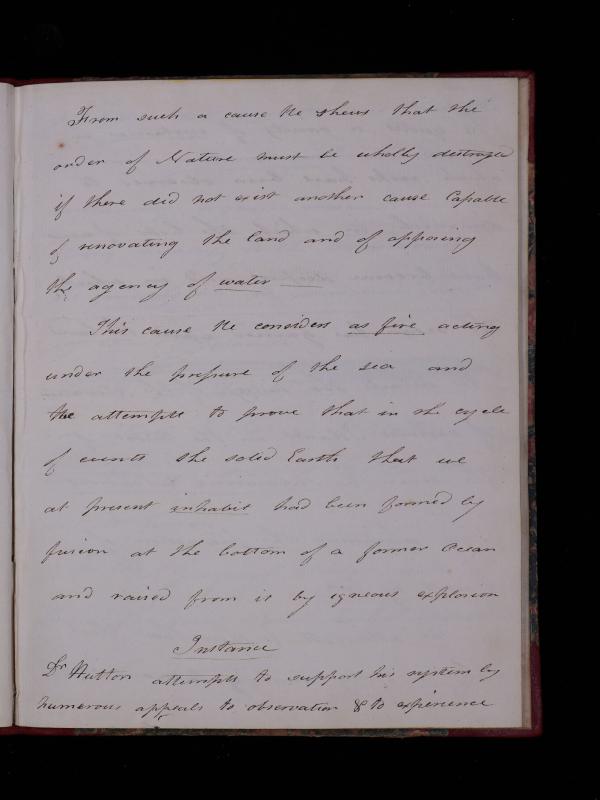 From such a cause he shews that the
order of Nature must be wholly destroyed
if there did not exist another cause Capable
of renovating the land and of opposing
the agency of water
This cause he considers as fire acting
under the pressure of the sea and
he attempts to prove that in the cycle
of events the solid Earth that we
at present inhabit had been formed by
fusion at the bottom of a former Ocean
and raised from it by igneous explosion
Instance
Dr Hutton attempts to support his system by
numerous appeals to observation & to experience